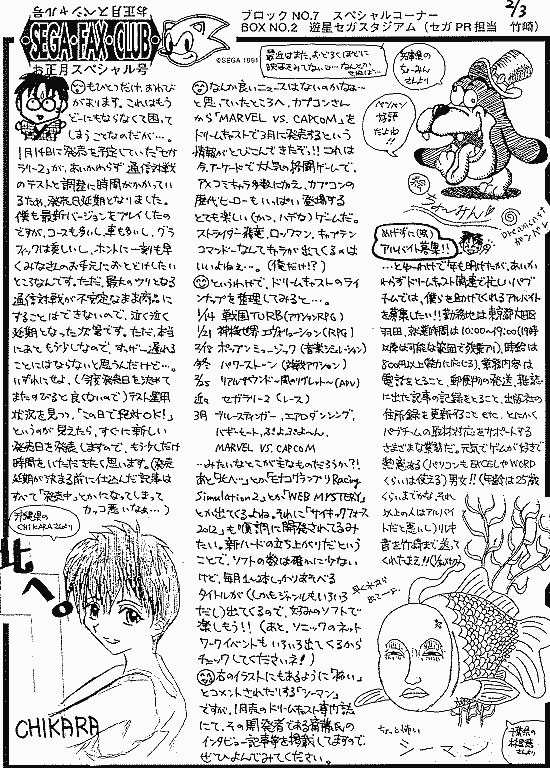 2/3
お正月スペシャル号
・SEGA・FAX・CLUB・
お正月スペシャル号
ブロックNO.7 スペシャルコーナー
BOX NO.2 遊星セガスタジアム (セガPR担当 竹崎)
©SEGA 1991
もひとつだけ、おわび
があります。これはもう
どーにもならなくて困って
しまうことなのだが…。
1月14日に発売を予定していた「セガ
ラリー2」が、あいかわらず通信対戦
のテストと調整に時間がかかってい
るため、発売日延期となりました。
僕も最新バージョンをプレイしたの
ですが、コースも多いし、車も多いし、グラ
フィックは美しいし、ホントに一刻も早
くみなさんのお手元におとどけしたい
ところなんです。ただ、最大のウリとなる
通信対戦が不安定なまま商品に
することはできないので、泣く泣く
延期となった次第です。ただ、本当
にあともう少しなので、すっげー遅れる
ことにはならないと思うんだけど…。
いずれにせよ、(今度発売日を決めて
またのびると良くないので)テスト運用
状況を見つつ、「この日で絶対OK!」
というのが見えたら、すぐに新しい
発売日を発表しますので、もう少しだけ
時間をいただきたく思います。(発売
延期が決まる前に仕込んだ記事は
すべて「発売中」とかになってしまって
カッコ悪いなぁ…)
CHIKARAさんより
北へ。
CHIKARA
なんか良いニュースはないのかなぁ…
と思っていたところへ、カプコンさん
から「MARVEL VS. CAPCOM」を
ドリームキャストで3月に発売するという
情報がとびこんできたぞ!! これは
今、アーケードで大人気の格闘ゲームで、
アメコミキャラ多数に加え、カプコンの
歴代ヒーローもいっぱい登場する
とても楽しい(かつ、ハデな)ゲームだ。
ストライダー飛竜、ロックマン、キャプテン
コマンドーなんてキャラが出てくるのは
いいよねぇ…。(俺だけ!?)
というわけで、ドリームキャストのライ
ンナップを整理してみると…。
1/14 戦国TURB(アクションRPG)
1/21 神機世界エヴォリューション(RPG)
ポップンミュージック(音楽シミュレーション)
パワーストーン(対戦アクション)
リアルサウンド〜風のリグレット〜(ADV)
近日 セガラリー2(レース)
3月 ブルースティンガー、エアロダンシング、
バギーヒート、ぷよぷよ〜ん、
MARVEL VS. CAPCOM
…みたいなとこが主なものだろうか?!
あと、「北へ…」とか「モナコグランプリRacing
Simulation2」とか「WEB MYSTERY」
とか出てくるよね。それに「サイキックフォース
2012」も順調に開発されてるみ
たい。新ハードの立ち上がりだという
ことで、ソフトの数は確かに少ない
けど、毎月1〜2本しっかりあそべる
タイトルが(しかもジャンルもいろいろ
だし)出てくるので、好みのソフトで
楽しもう!! (あと、ソニックのネット
ワークイベントもいろいろ出てくるから
チェックしてくださいネ!)
右のイラストにもあるように「怖い」
とコメントされたりする「シーマン」
ですが、1月売のドリームキャスト専門誌
にて、その開発者である斎藤氏の
インタビュー記事等を掲載してますので、
ぜひよんでみてください。
さんより
パソコン
好評
だよぉ!!
めげずに(笑)
アルバイト募集!!
…とゆーわけで年も明けたが、あいか
わらずドリームキャスト関連で忙しいパブ
チームでは、僕らを助けてくれるアルバイト
を募集したい!! 勤務地は東京都大田区
羽田、就業時間は10:00〜19:00(19時
以降は可能な範囲で残業アリ)、時給は
800円以上(能力に応じる)、業務内容は
電話をとること、郵便物の発送、雑誌
に出た記事の記録をとること、出版社の
住所録を更新すること etc、とにかく
パブチームの取材対応をサポートする
さまざまな業務だ。元気でゲームが好きで
熱意ある(パソコンもEXCELやWORD
くらいは使える)男女!! (年齢は25歳
くらいまでかな。それ
以上の人はアルバイ
トだと悪いし)リレキ
書を竹崎まで送って
くれたまえ!!
ちょーっと怖い
シーマン
千葉県の
さんより